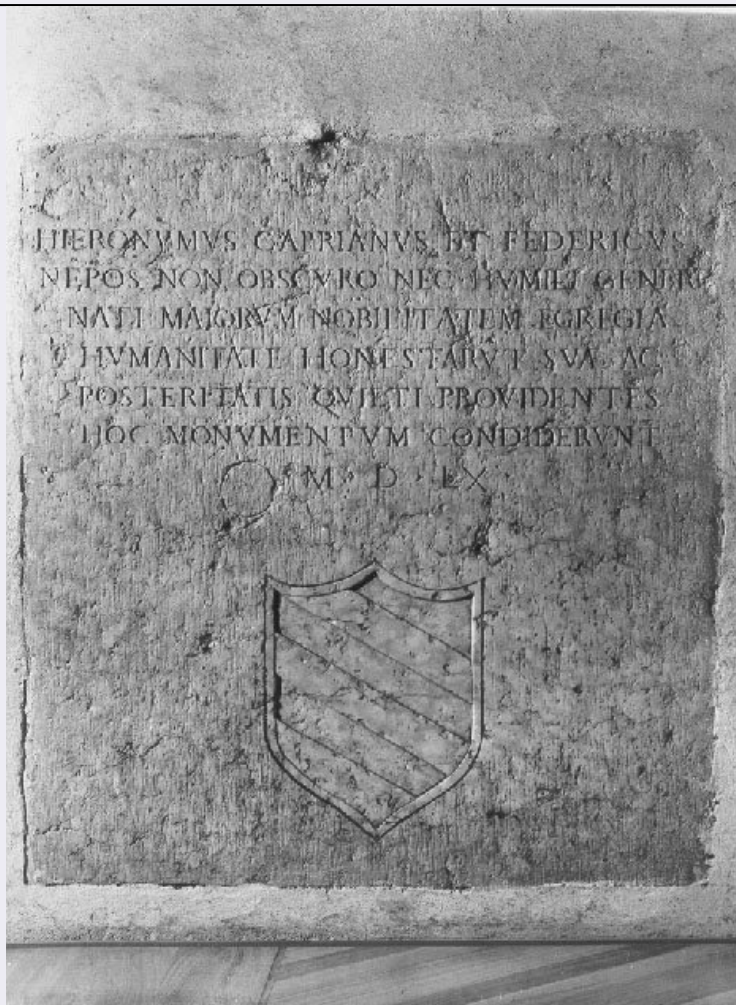 HIERONYMVS CAPRIANVS ET FEDERICVS
NEPOS NON OBSCVRO NEC HVMILI GENERE
NATI MAIORVM NOBILITATEM EGREGIA
HVMANITATE HONESTARVT SVA AC
POSTERITATIS QVIETI PROVIDENTES
HOC MONVMENTVM CONDIDERVNT
M · D · LX ·